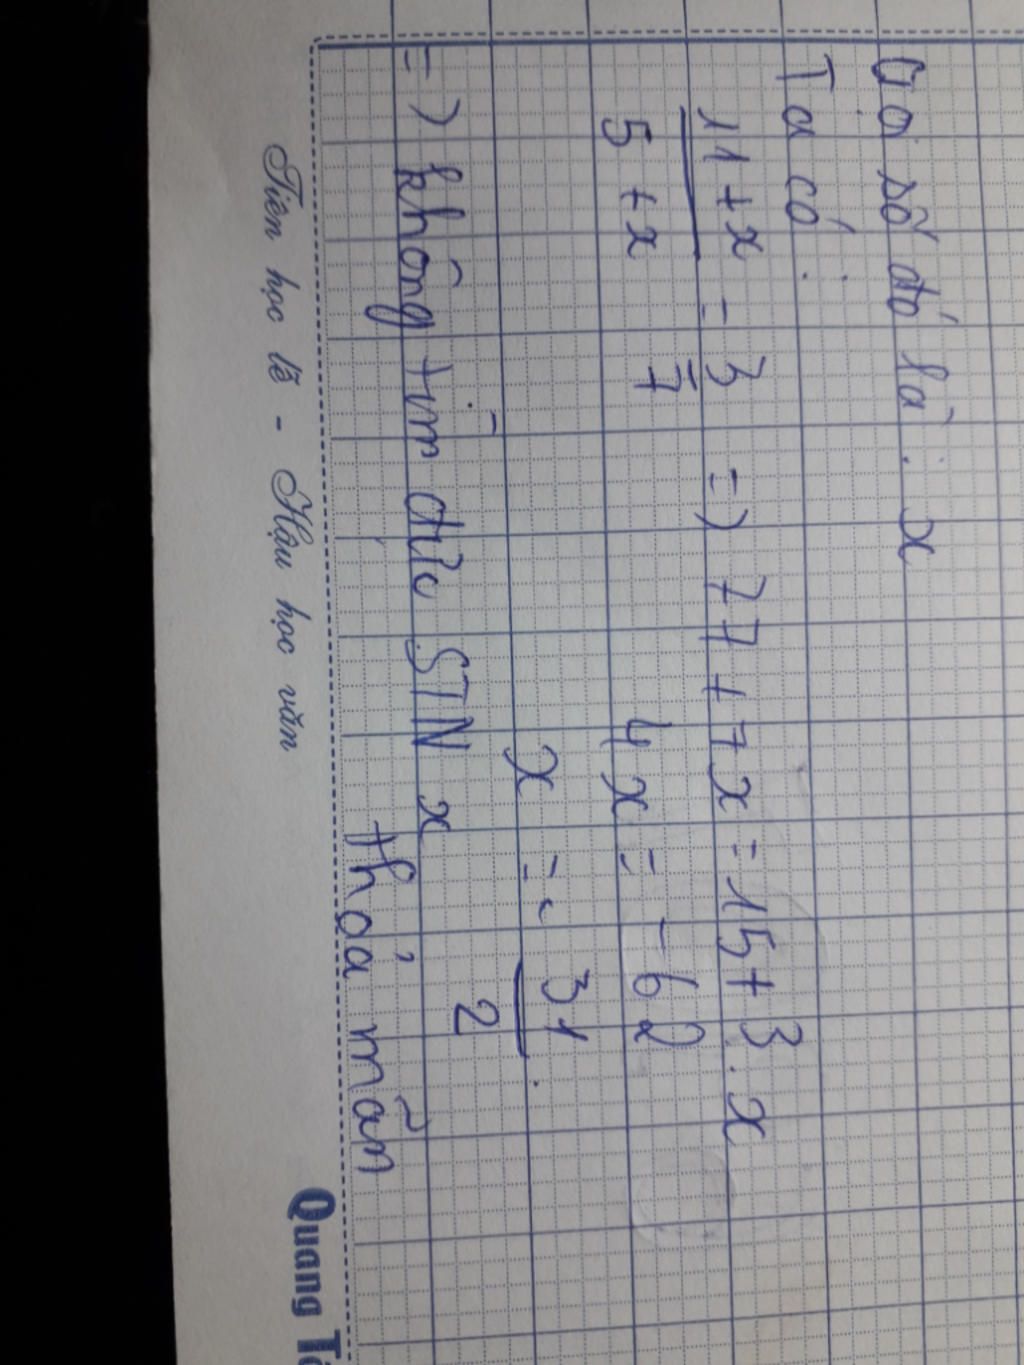 Gọi số đó là : x
Ta có :
11 + x / 5 + x = 3 / 7 => 77 + 7x = 15 + 3 . x
4x = -62
x = - 31 / 2 .
=) không tìm đức STN x
thoả mãn
Tiên học lễ - Hậu học văn
Quang